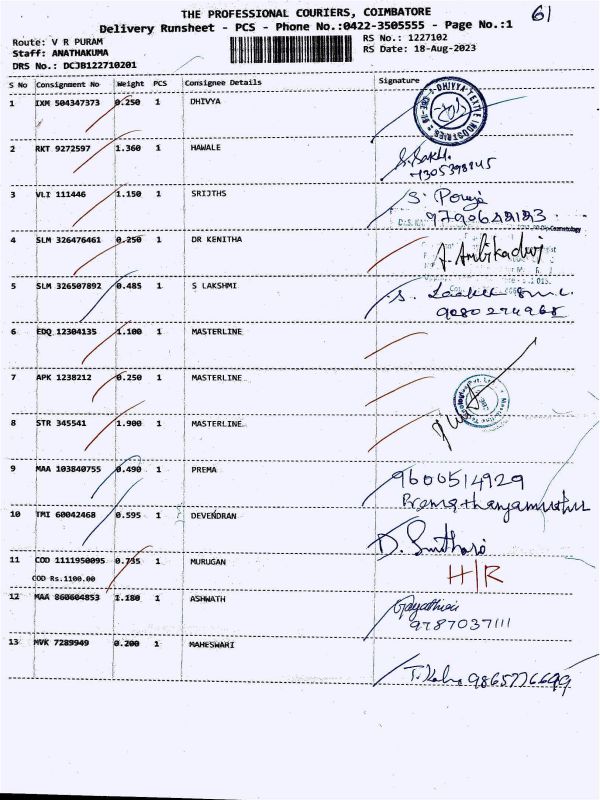 THE PROFESSIONAL COURIERS, COIMBATORE
61
Delivery Runsheet - PCS - Phone No.:0422-3505555 - Page No.:1
Route: V R PURAM
RS No.: 1227102
Staff: ANATHAKUMA
RS Date: 18-Aug-2023
DRS No.: DCJB122710201
S No Consignment No Weight PCS Consignee Details Signature
1 IXM 504347373 0.250 1 DHIVYA
DHIVYA TEXTILE INDUSTRIES
2 RKT 9272597 1.360 1 HAWALE
3 VLI 111446 1.150 1 SRIJTHS
S. Pooja
4 SLM 326476461 0.250 1 DR KENITHA
5 SLM 326507892 0.485 1 S LAKSHMI
9080274968
6 EDQ 12304135 1.100 1 MASTERLINE
7 APK 1238212 0.250 1 MASTERLINE
8 STR 345541 1.900 1 MASTERLINE
9 MAA 103840755 0.490 1 PREMA
9600514929
10 TMI 60042468 0.595 1 DEVENDRAN
11 COD 1111950095 0.735 1 MURUGAN
H/R
COD Rs.1100.00
12 MAA 860604853 1.180 1 ASHWATH
9787037111
13 MVK 7289949 0.200 1 MAHESWARI
9865776699